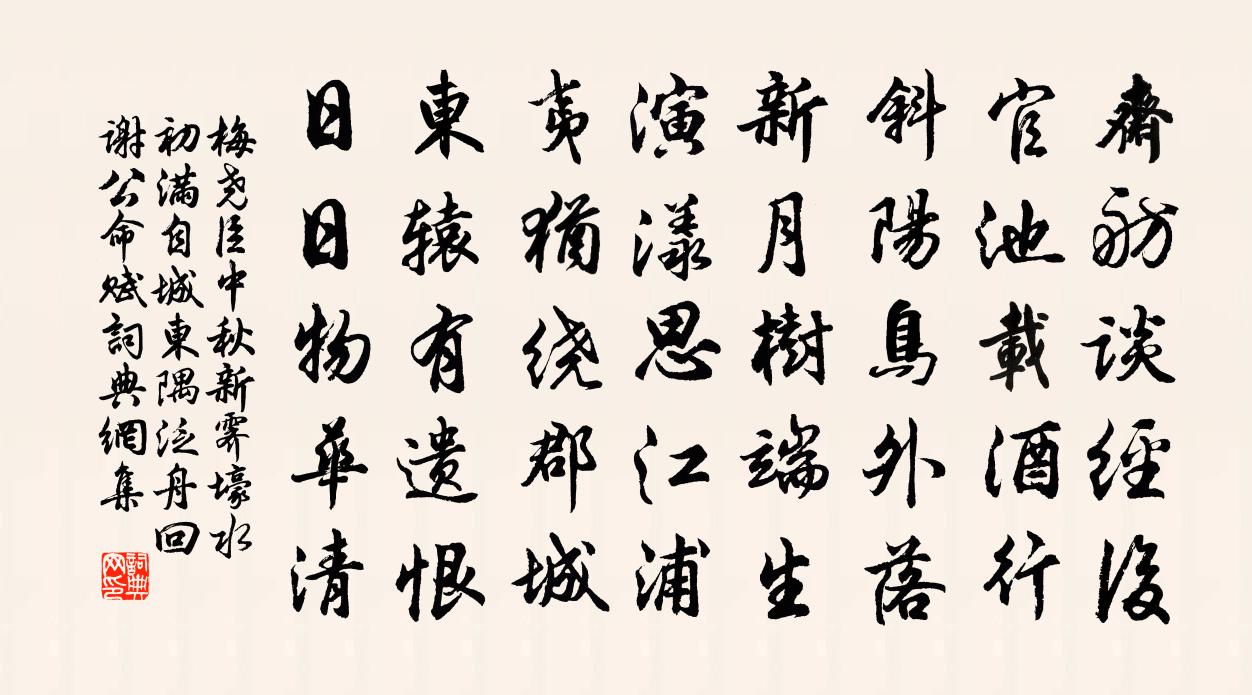 齋舫談經後
官池載酒行
斜陽鳥外落
新月樹端生
演漾思江浦
夷猶绕郡城
東辕有遗恨
日日物華清
梅尧臣中秋新霽壕水
初滿自城東隅泛舟回
谢公命赋詞典網集
詞典网印